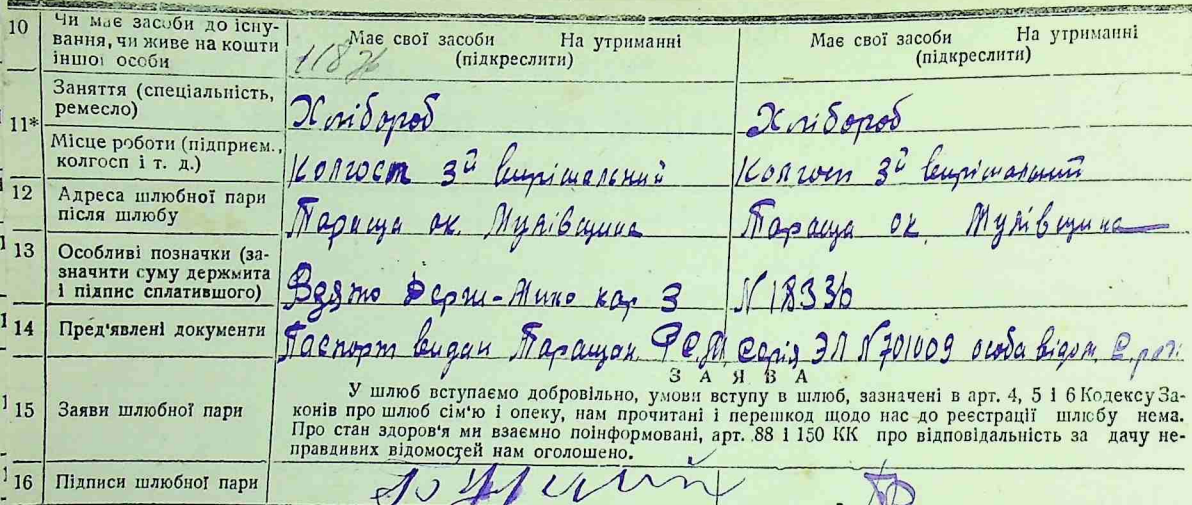 10 Чи має засоби до існу- Має свої засоби На утриманні Має свої засоби На утриманні
вання, чи живе на кошти (підкреслити) (підкреслити)
іншої особи
Заняття (спеціальність,
ремесло) Хлібороб Хлібороб
11*
Місце роботи (підприєм.,
колгосп і т. д.) Колгосп 3й вирішальний Колгосп 3й вирішальний
12 Адреса шлюбної пари
після шлюбу Тараща ок. Мулівщина Тараща ок. Мулівщина
13 Особливі позначки (за-
значити суму держмита
і підпис сплатившого) Взято Держ-Мито кар 3 N 18336
14 Пред'явлені документи Паспорт видан Таращан. серія ЭЛ N701009 особа відом.
ЗАЯВА
У шлюб вступаємо добровільно, умови вступу в шлюб, зазначені в арт. 4, 5 і 6 Кодексу За-
15 Заяви шлюбної пари конів про шлюб сім'ю і опеку, нам прочитані і перешкод щодо нас до реєстрації шлюбу нема.
Про стан здоров'я ми взаємно поінформовані, арт. 88 і 150 КК про відповідальність за дачу не-
правдивих відомостей нам оголошено.
16 Підписи шлюбної пари